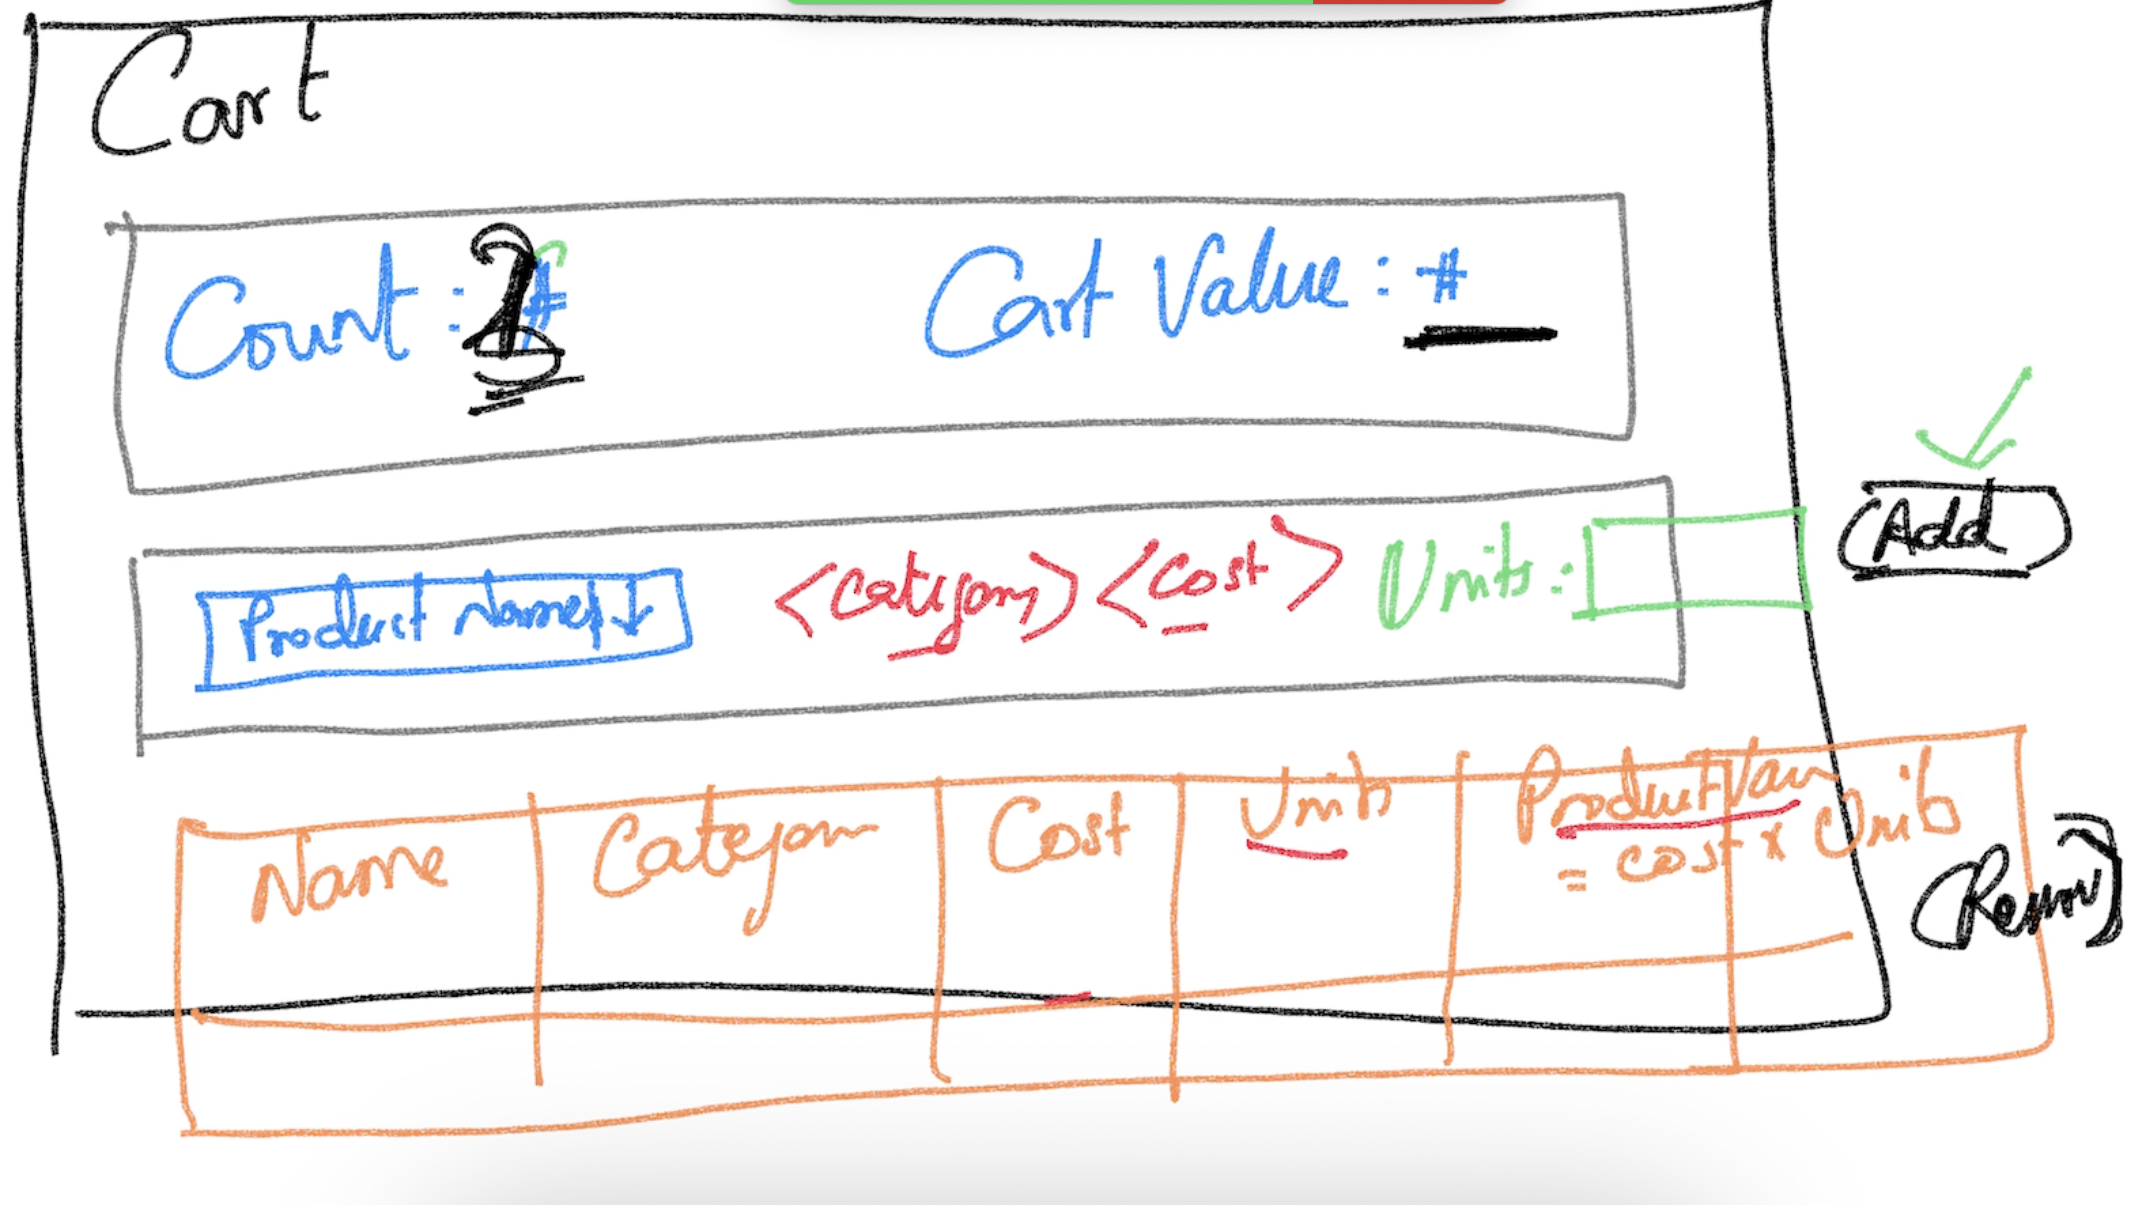 Cart
Count : #
Cart Value : #
Product Name ↓ <Category> <Cost> Units : Add
Name Category Cost Units Product Value
= cost x Units